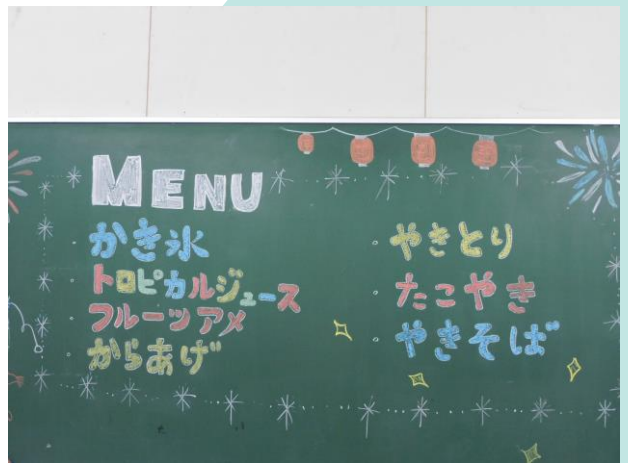 MENU
・かき氷
・トロピカルジュース
・フルーツアメ
・からあげ
・やきとり
・たこやき
・やきそば